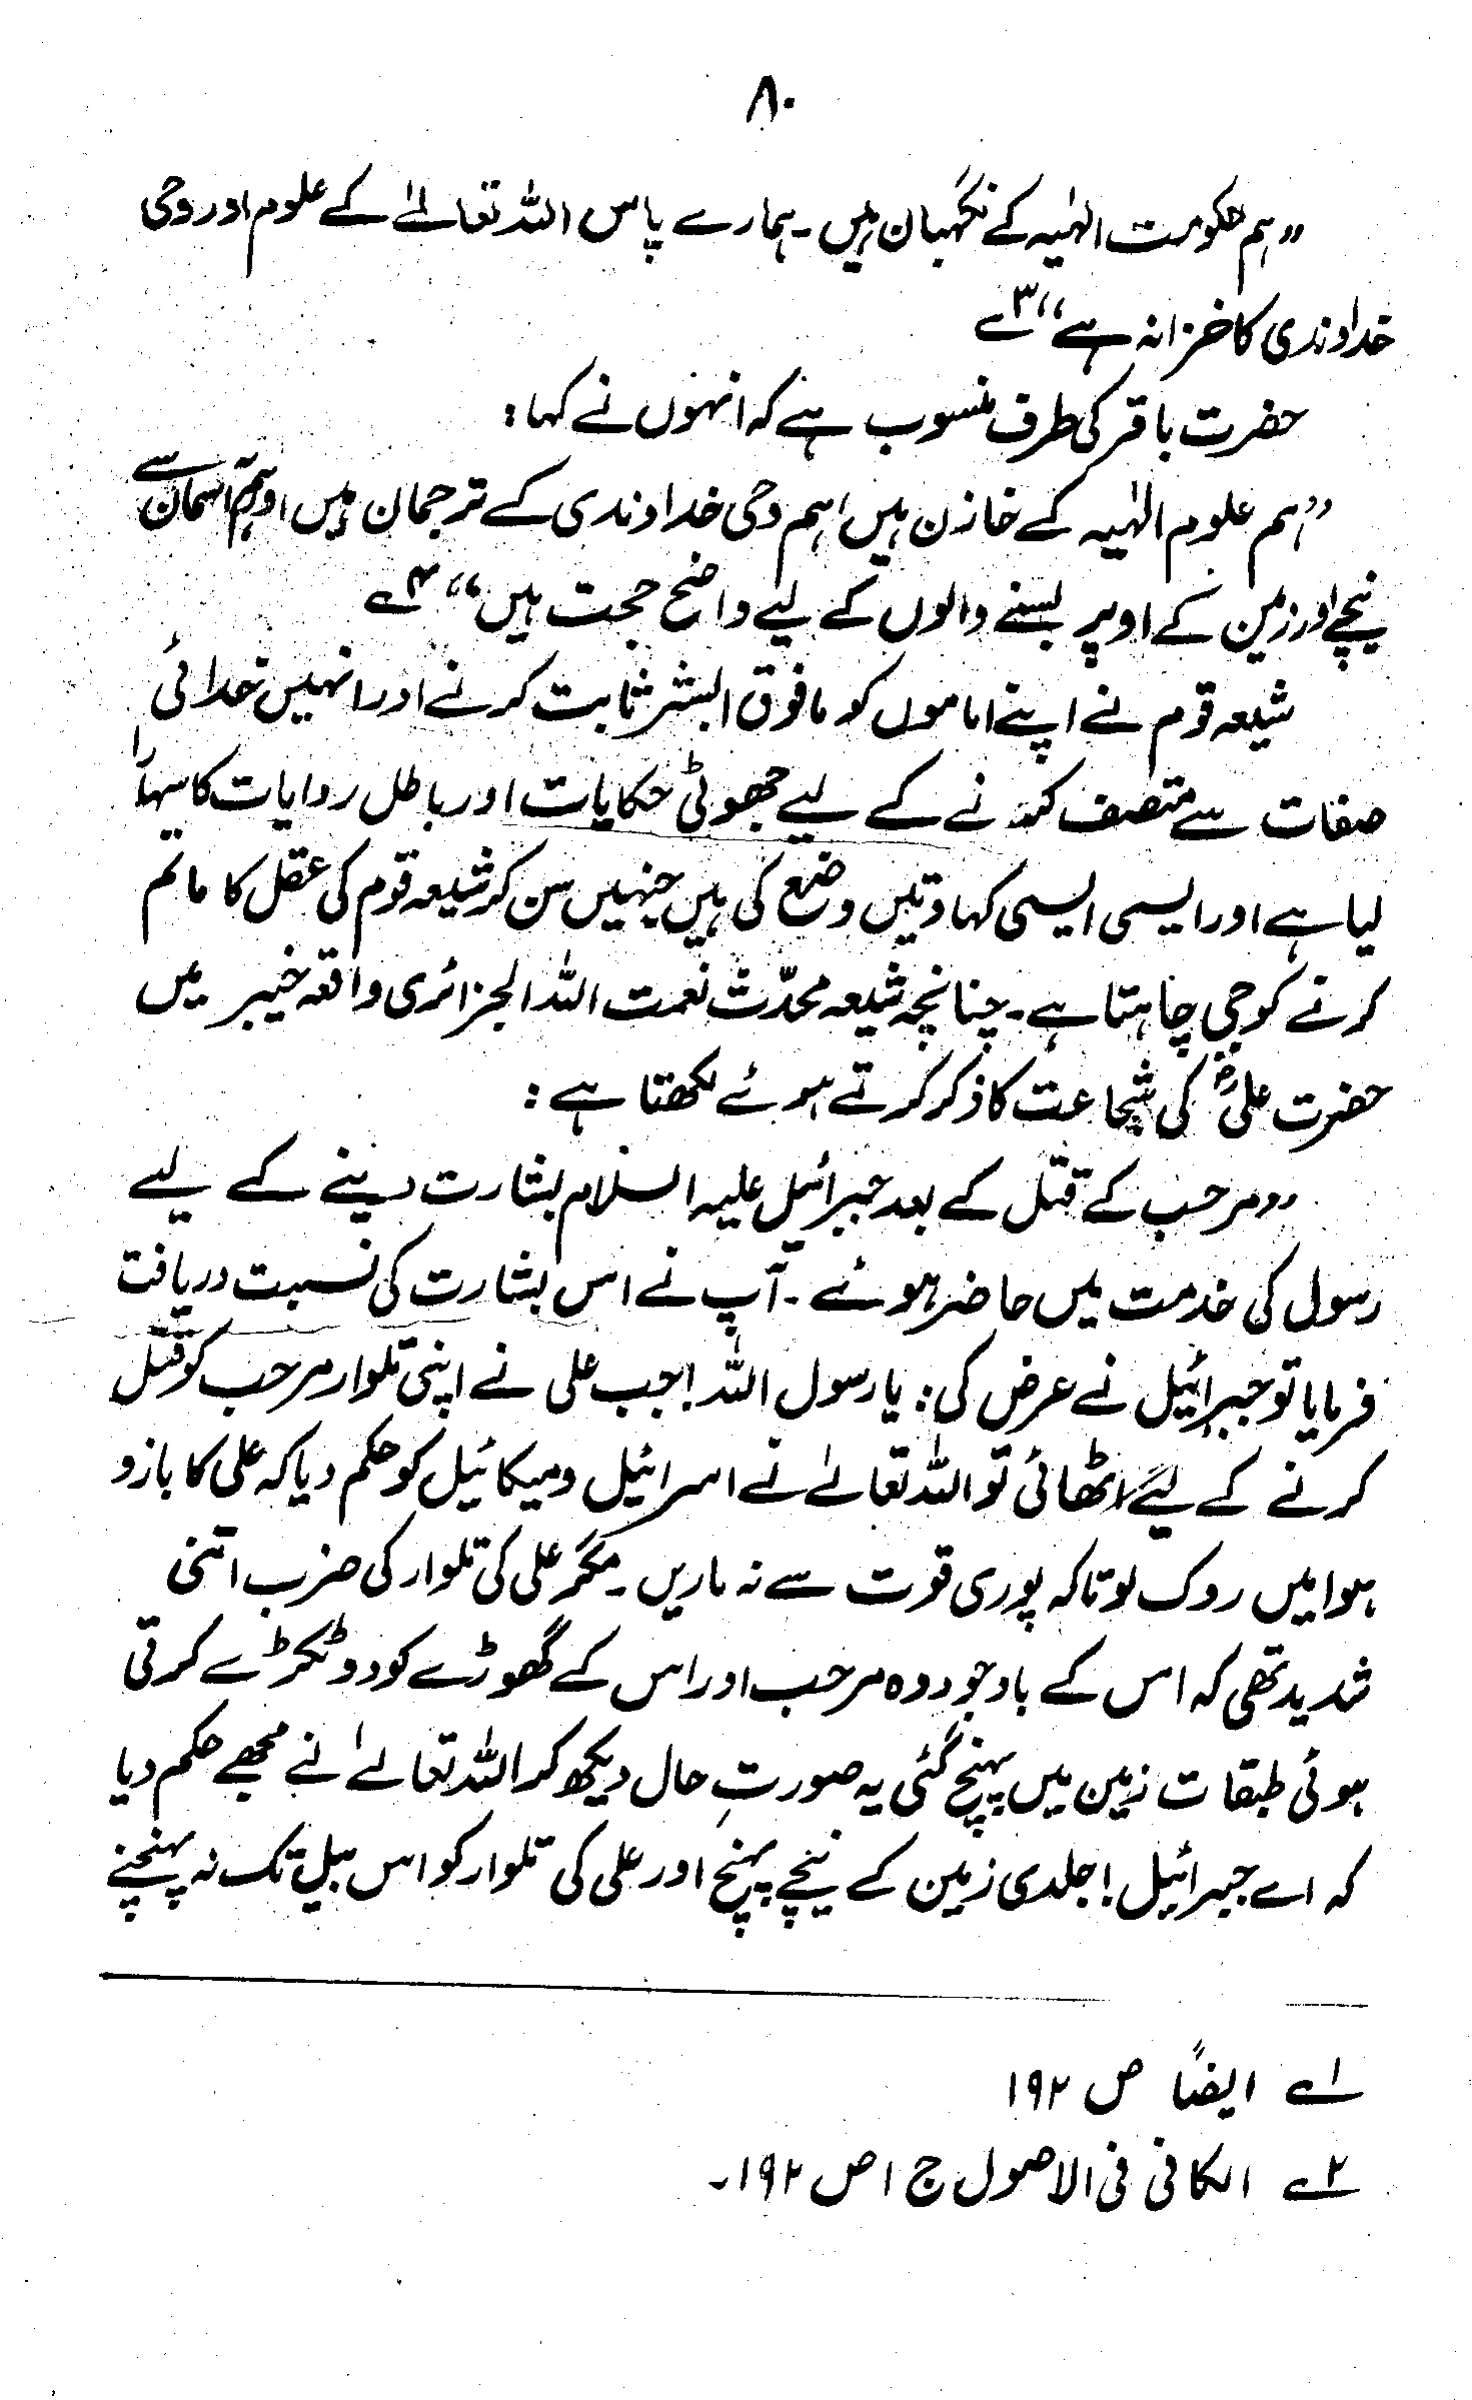 ۸۰
”ہم حکومت الہٰیہ کے نگہبان ہیں۔ ہمارے پاس اللہ تعالےٰ کے علوم اور وحی
خداوندی کا خزانہ ہے“ ۳ے
حضرت باقر کی طرف منسوب ہے کہ انہوں نے کہا:
”ہم علوم الہٰیہ کے خازن ہیں، ہم وحی خداوندی کے ترجمان ہیں اور ہم آسمان سے
نیچے اور زمین کے اوپر بسنے والوں کے لیے واضح حجت ہیں“ ۴ے
شیعہ قوم نے اپنے اماموں کو مافوق البشر ثابت کرنے اور انہیں خدائی
صفات سے متصف کرنے کے لیے جھوٹی حکایات اور باطل روایات کا سہارا
لیا ہے اور ایسی ایسی کہاوتیں وضع کی ہیں جنہیں سن کر شیعہ قوم کی عقل کا ماتم
کرنے کو جی چاہتا ہے۔ چنانچہ شیعہ محدّث نعمت اللہ الجزائری واقعہ خیبر میں
حضرت علیؓ کی شجاعت کا ذکر کرتے ہوئے لکھتا ہے:
”مرحب کے قتل کے بعد جبرائیل علیہ السلام بشارت دینے کے لیے
رسول کی خدمت میں حاضر ہوئے۔ آپ نے اس بشارت کی نسبت دریافت
فرمایا تو جبرائیل نے عرض کی: یا رسول اللہ! جب علی نے اپنی تلوار مرحب کو قتل
کرنے کے لیے اٹھائی تو اللہ تعالےٰ نے اسرائیل و میکائیل کو حکم دیا کہ علی کا بازو
ہوا میں روک لو تاکہ پوری قوت سے نہ ماریں۔ مگر علی کی تلوار کی ضرب اتنی
شدید تھی کہ اس کے باوجود وہ مرحب اور اس کے گھوڑے کو دو ٹکڑے کرتی
ہوئی طبقات زمین میں پہنچ گئی یہ صورتِ حال دیکھ کر اللہ تعالےٰ نے مجھے حکم دیا
کہ اے جبرائیل! جلدی زمین کے نیچے پہنچ اور علی کی تلوار کو اس بیل تک نہ پہنچنے
۱ے ایضًا ص ۱۹۲
۲ے الکافی فی الاصول ج ۱ ص ۱۹۲۔